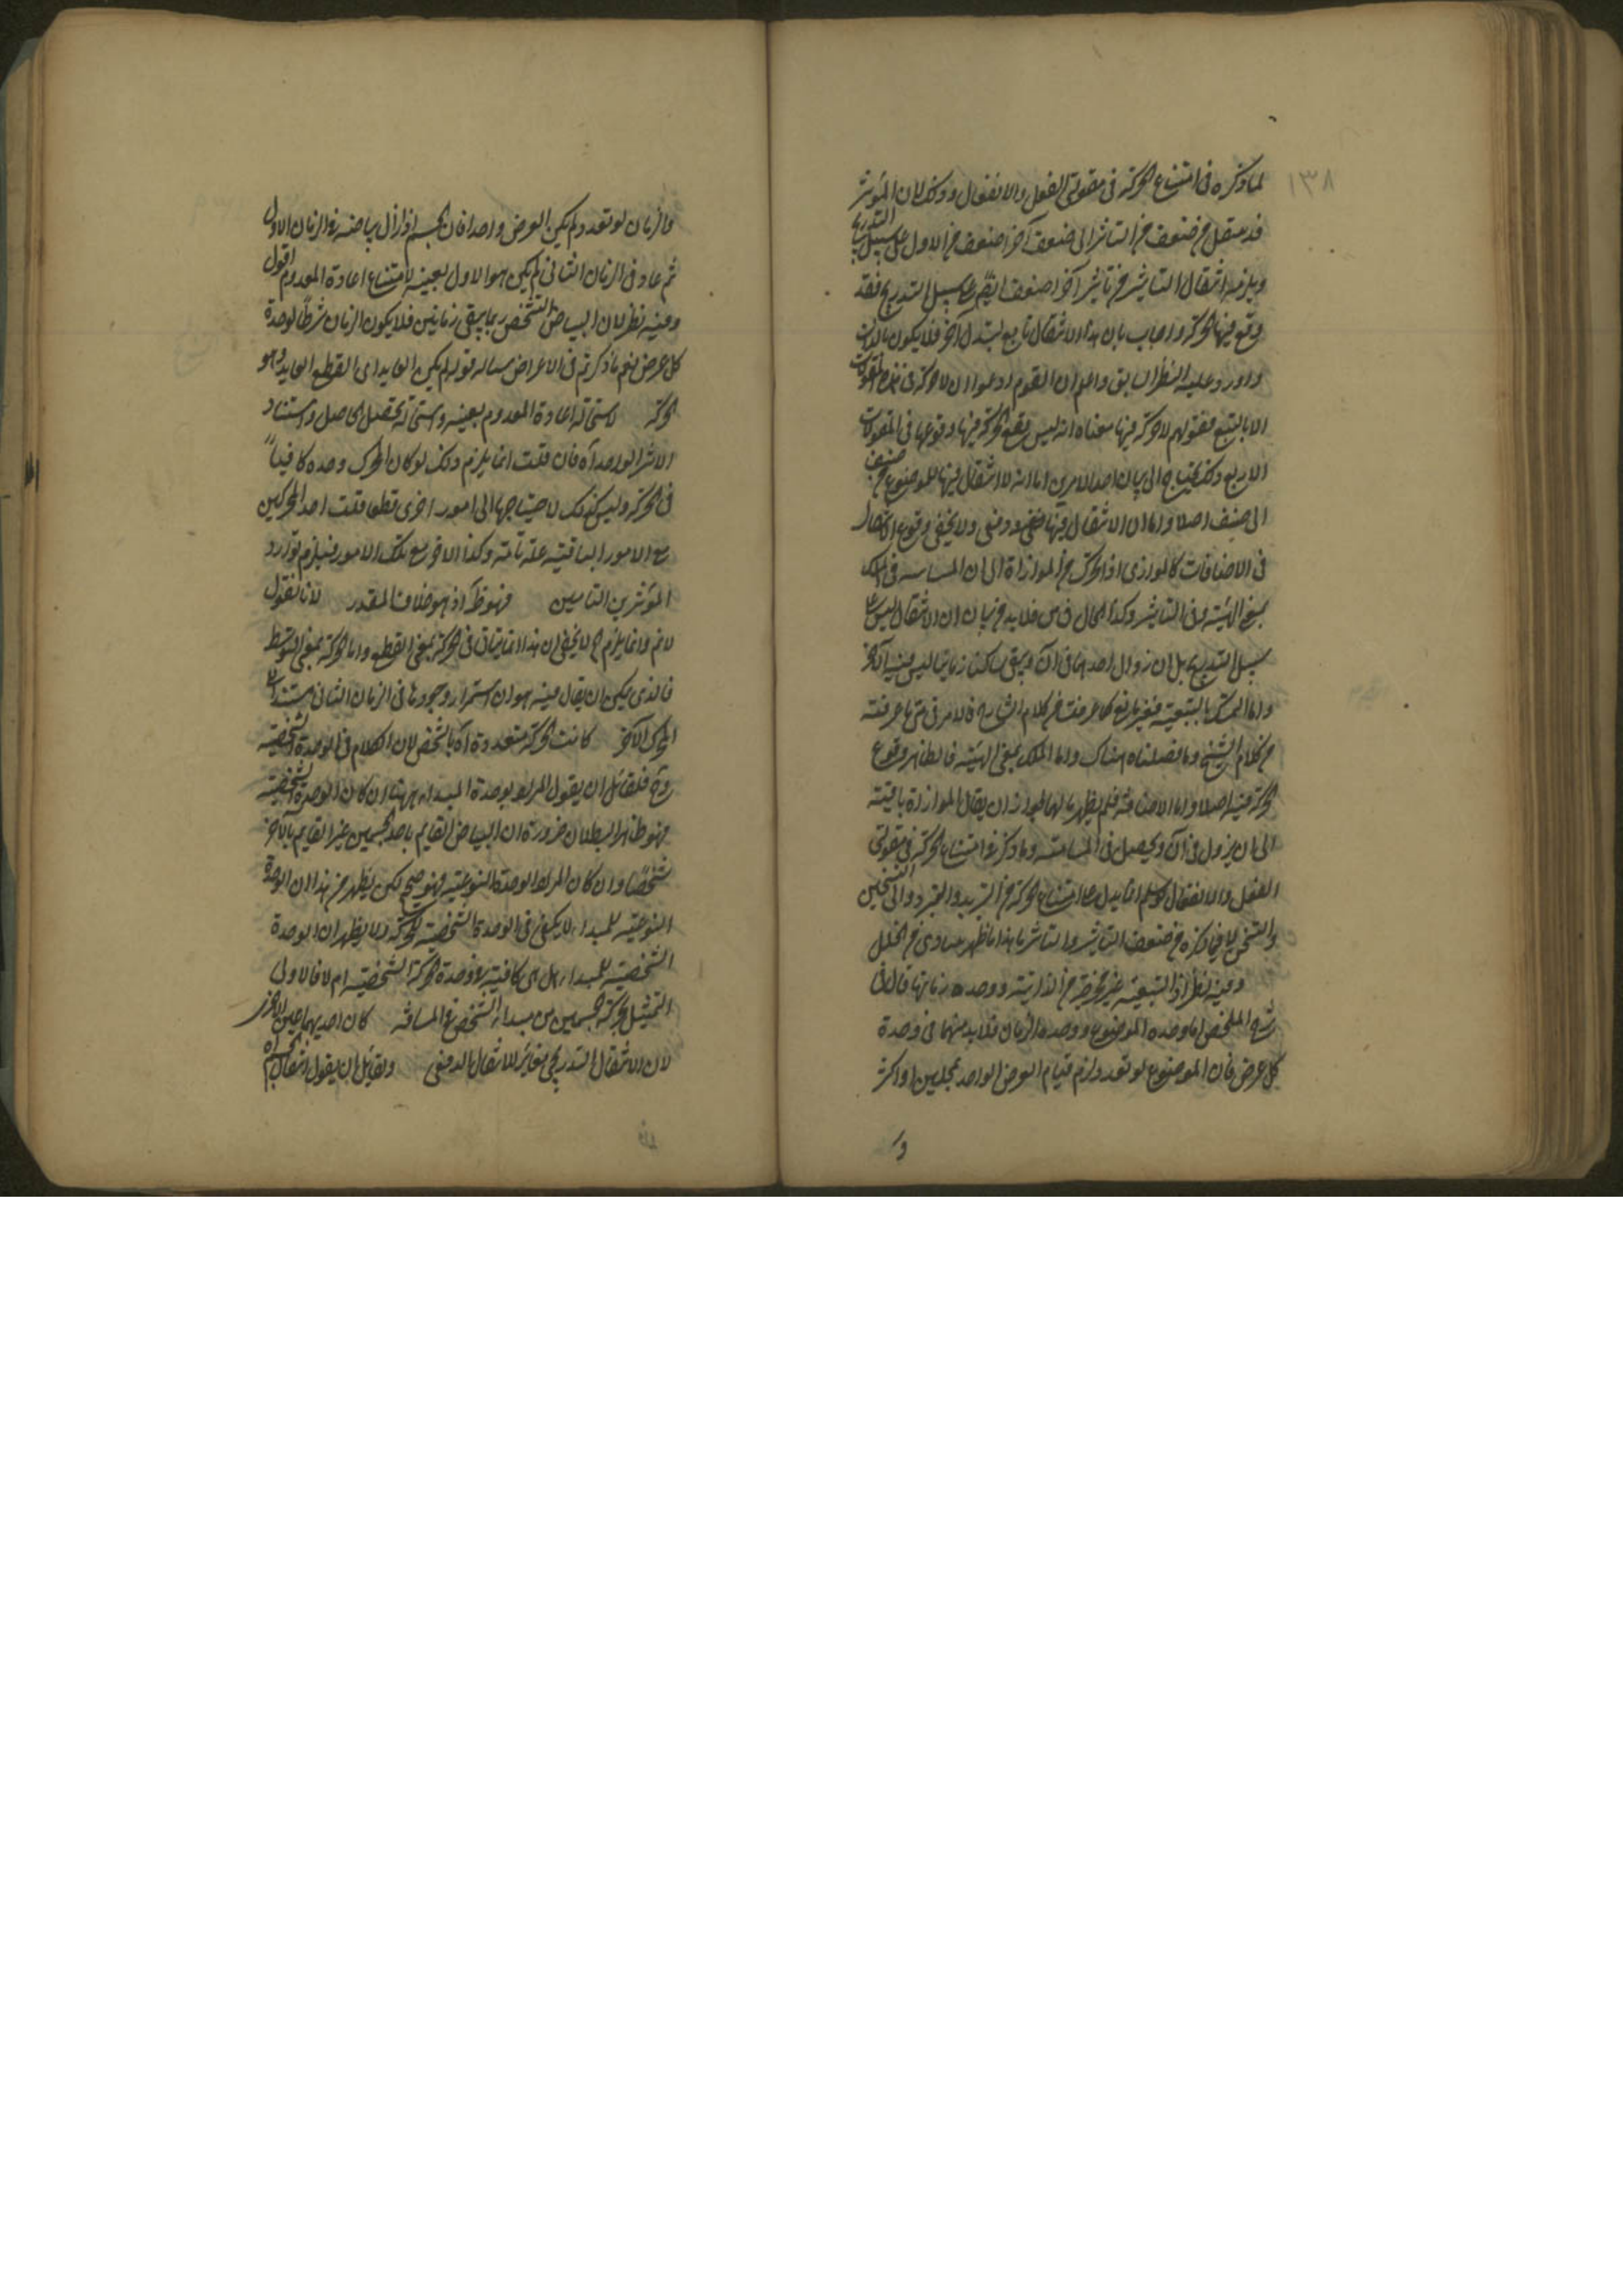 ١٣٨
لما ذكره فى امتناع الحركة فى مقولتى الفعل والانفعال وذلك لان المؤثر
قد ينتقل من ضعف من التاثير الى ضعف آخر اضعف من الاول على سبيل التدريج
ويلزمه انتقال التاثير من تاثير آخر اضعف ايضم على سبيل التدريج فقد
وقع فيها الحركة واجاب بان هذا الانتقال تابع لتبدل آخر فلا يكون بالذات
واورد عليه النظر السابق واعلم ان القوم ادعوا ان لا حركة فى هذه المقولات
الا بالتبع فقولهم لا حركة فيها معناه انه ليس يقع الحركة فيها وقوعها فى المقولات
الاربع وذلك يحتاج الى بيان احد الامرين اما انه لا انتقال فيها للموضوع من صنف
الى صنف اصلا واما ان الانتقال فيها دفعى ولا يخفى وقوع الانتقال
فى الاضافات كالموازى اذا تحرك من الموازاة الى ان المسامته فى الملك
بمعنى الهيئة وفى التاثير وكذا الحال فى فلا بد من بيان ان الانتقال ليس على
سبيل التدريج بل ان زوال احدهما فى آن ويبقى ساكنا زمانا ليس فيه الآخر
واما التمسك بالتبعية فغير نافع كما عرفت من كلام الشارح فالامر فى متى ما عرفته
من كلام الشيخ وما فصلناه هناك واما الملك بمعنى الهيئة فالظاهر وقوع
الحركة فيه اصلا واما الاضافة فلم يظهر حالها لجواز ان يقال الموازاة باقية
الى ان يزول فى آن ويحصل فى المسامتة وما ذكر فى امتناع الحركة فى مقولتى
الفعل والانفعال لو سلم انما يدل على امتناع الحركة من التبريد والتبرد والى التسخين
والتسخن لا فيما ذكره من ضعف التاثير والتاثر هذا ما ظهر عندى من الخلل
وفيه نظر اذ التبعية غير مخرجة من الذاتية ووحدة زمانها قال فى
شرح الملخص اما وحدة الموضوع ووحدة الزمان فلا بد منهما فى وحدة
كل عرض فان الموضوع لو تعدد لزم قيام العرض الواحد بمحلين او اكثر
والزمان لو تعدد ولم يكن العرض واحدا فان الجسم اذا زال بياضه فى الزمان الاول
ثم عاد فى الزمان الثانى لم يكن هو الاول بعينه لامتناع اعادة المعدوم اقول
وفيه نظر لان البياض الشخص ربما يبقى زمانين فلا يكون الزمان شرطا لوحدة
كل عرض نعم ما ذكرتم فى الاعراض سياله قوله لم يكن العايد اى القطع العايد وهو
الحركة لاستحالة اعادة المعدوم بعينه واستحالة تحصيل الحاصل واستناد
الاثر الواحد آه فان قلت انما يلزم ذلك لو كان المحرك وحده كافيا
فى الحركة وليس كذلك لاحتياجها الى امور اخرى قطعا قلت احد المحركين
مع الامور الباقية علة تامة وكذا الآخر مع تلك الامور فيلزم توارد
المؤثرين التامين فهو ظ آه اذ هو خلاف المقدر لانا نقول
لانم وانما يلزم ح لا يخفى ان هذا انما يتاتى فى الحركة بمعنى القطع واما الحركة بمعنى التوسط
فالذى يمكن ان يقال فيه هو ان استمرار وجودها فى الزمان الثانى مستند الى
المحرك الآخر كانت الحركة متعددة آه بالشخص لان الكلام فى الوحدة الشخصية
وح فلقائل ان يقول المراد بوحدة المبداء ههنا ان كان الوحدة الشخصية
فهو ظاهر البطلان ضرورة ان البياض القايم باحد الجسمين غير القايم بالآخر
شخصا وان كان المراد الوحدة النوعية فهو صحيح لكن يظهر من هذا ان الوحدة
النوعية للمبداء لا يكفى فى الوحدة الشخصية للحركة ولا يظهر ان الوحدة
الشخصية للمبداء هل هى كافية فى وحدة الحركة الشخصية ام لا فالاولى
التمثيل بحركة جسمين من مبداء الشخص فى المسافة كان احديهما عين الاخرى
لان الانتقال التدريجى مغاير للانتقال الدفعى ولقائل ان يقول انتقال الجسم